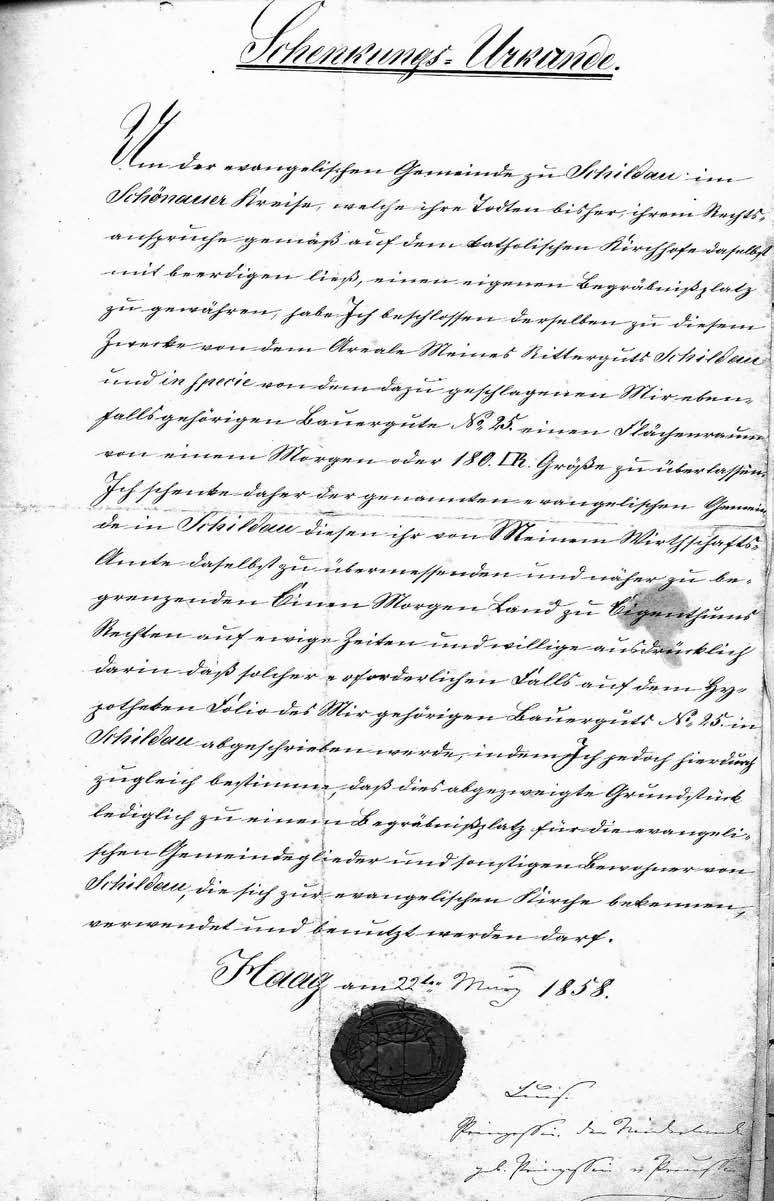 Schenkungs-Urkunde.
Um der evangelischen Gemeinde zu Schildau im
Schönauer Kreise, welche ihre Todten bisher, ihrem Rechts-
anspruche gemäß auf dem katholischen Kirchhofe daselbst
mit beerdigen ließ, einen eigenen Begräbnißplatz
zu gewähren, habe Ich beschlossen derselben zu diesem
Zwecke von dem Areale Meines Ritterguts Schildau
und in specie von dem dazu geschlagenen Mir eben-
falls gehörigen Bauergute No. 25. einen Flächenraum
von einem Morgen oder 180. □R. Größe zu überlassen.
Ich schenke daher der genannten evangelischen Gemein-
de in Schildau diesen ihr von Meinem Wirthschafts-
Amte daselbst zu übermessenden und näher zu be-
grenzenden Einen Morgen Land zu Eigenthums
Rechten auf ewige Zeiten und willige ausdrücklich
darin daß solcher erforderlichen Falls auf dem Hy-
potheken Folio des Mir gehörigen Bauerguts No. 25. in
Schildau abgeschrieben werde, indem Ich jedoch hierdurch
zugleich bestimme, daß dies abgezweigte Grundstück
lediglich zu einem Begräbnißplatz für die evangeli-
schen Gemeindeglieder und sonstigen Bewohner von
Schildau, die sich zur evangelischen Kirche bekennen,
verwendet und benutzt werden darf.
Haag am 22ten März 1858.
Luise
Prinzessin der Niederlande
geb. Prinzessin v Preussen